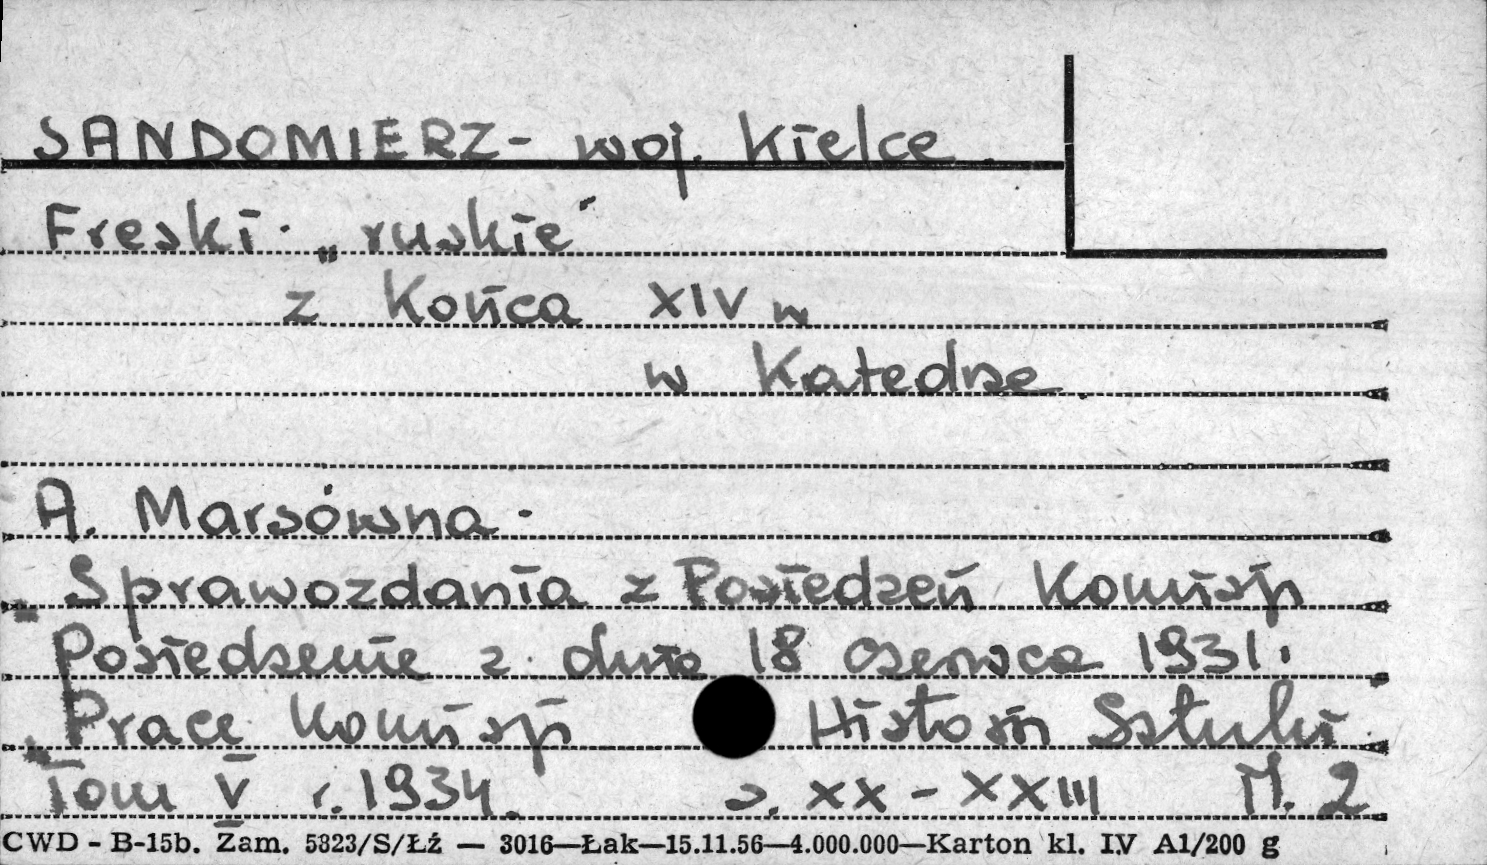 SANDOMIERZ - woj. Kielce.
Freski „ruskie"
z Końca XIV w
w Katedrze.
A. Marsówna.
„Sprawozdania z Posiedzeń Komisji
Posiedzenie z dnia 18 czerwca 1931.
„Prace Komisji Historii Sztuki
Tom V r. 1934. s. XX - XXIII M. 2
CWD - B-15b. Zam. 5823/S/Łź — 3016—Łak—15.11.56—4.000.000—Karton kl. IV A1/200 g